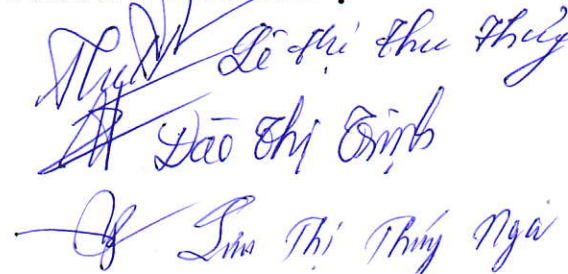 Lê Thị Thu Thủy
Đào Thị Trình
Lưu Thị Thúy Nga